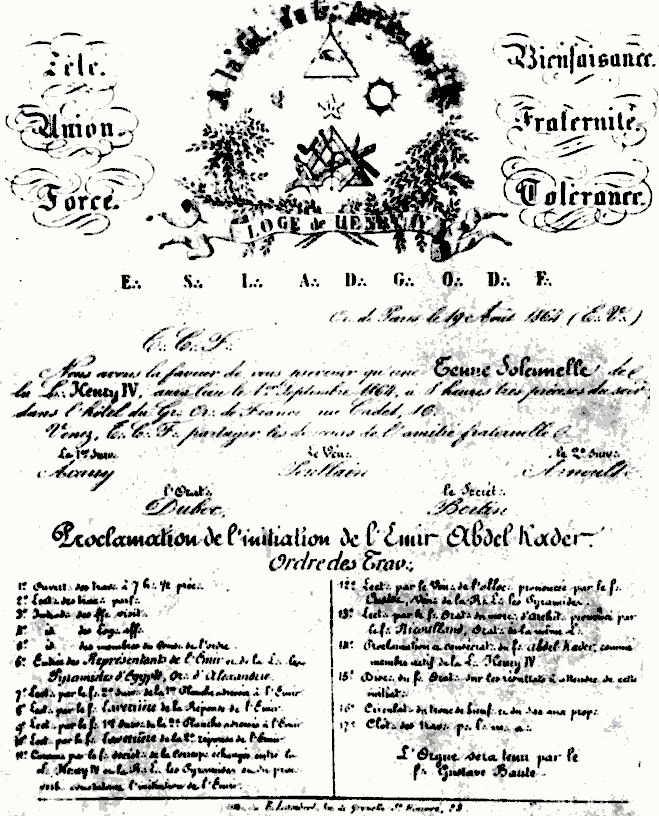 A la Gl. du Gr. Arch. de l'U.
Zèle.
Bienfaisance.
Union.
Fraternité.
Force.
Tolérance.
LOGE de HENRI IV
E∴ S∴ L∴ A∴ D∴ G∴ O∴ D∴ F∴
Or. de Paris, le 19 Août 1864 (E∴ V∴)
C∴ C∴ F∴
Nous avons la faveur de vous prévenir qu'une Tenue Solennelle de
la L∴ Henry IV, aura lieu le 1er Septembre 1864, à 8 heures très précises du soir,
dans l'hôtel du Gr∴ Or∴ de France rue Cadet, 16.
Venez, C∴ C∴ F∴ partager les douceurs de l'amitié fraternelle
Le 1er Surv∴ le Vén∴ le 2e Surv∴
Poullain Arnoult
l'Orat∴ le Secrét∴
Duboc, Bertin
Proclamation de l'initiation de l'Emir Abdel Kader.
Ordre des Trav∴
1° Ouvert. des trav. à 7 h. ½ préc.
2° Lect. des trav.
3° Introd. des ff. visit.
4° id des Log. aff.
5° id des membres du de l'ordre.
6° Entrée des Représentants de l'Emir et de la L. les
Pyramides d'Egypte, Or. d'Alexandrie.
7° Lect. par le f. 2e Surv. de la 1re Planche adressée à l'Emir
8° Lect. par le f. de la Réponse de l'Emir.
9° Lect. par le f. 1er Surv. de la 2e Planche adressée à l'Emir
10° Lect. par le f. de la 2e réponse de l'Emir.
11° par le f. de la Corresp. échangée entre la
Henry IV et la R. L. les Pyramides et du proc.
verb. constatant l'initiation de l'Emir.
12° Lect. par le Vén. de l'alloc. prononcée par le f.
Vén. de la R. L. les Pyramides.
13° Lect. par le f. Orat. du morc. d'archit. prononcé par
le f. Orat. de la même L.
14° Proclamation et du f. Abdel Kader, comme
membre actif de la L. Henry IV
15° Disc. du f. Orat. sur les résultats à attendre de cette
initiat.
16° Circulat. du tronc de bienf. et du sac aux prop.
17° Clôt. des trav.
L'Orgue sera tenu par le
f. Gustave